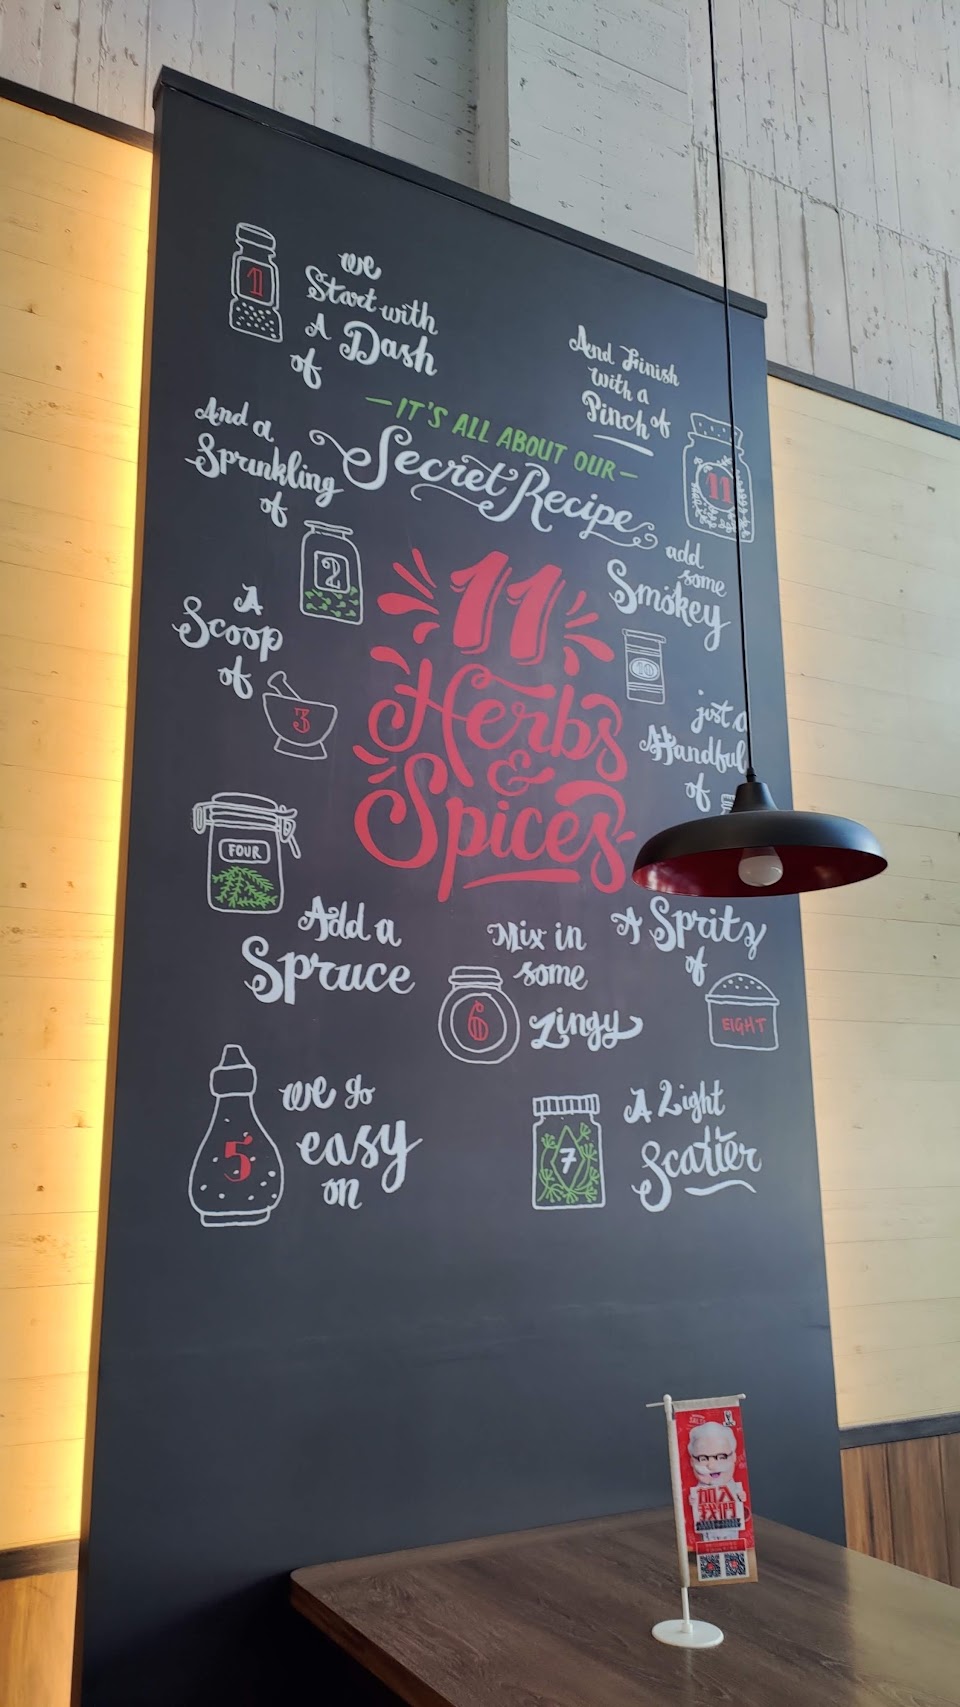 1
we
Start with
A Dash
of
And a
Sprinkling
of
2
A
Scoop
of
3
FOUR
Add a
Spruce
5
we go
easy
on
6
Mix in
some
Zingy
7
A Light
Scatter
A Spritz
of
EIGHT
just a
Handful
of
add
some
Smokey
10
And Finish
with a
Pinch of
11
—IT'S ALL ABOUT OUR—
Secret Recipe
11
Herbs
&
Spices
加入
我們